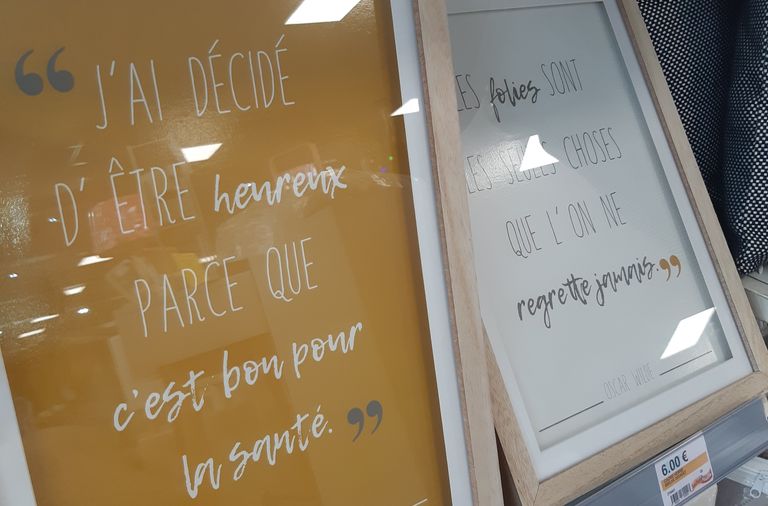 “ J'AI DÉCIDÉ
D' ÊTRE heureux
PARCE QUE
c'est bon pour
la santé. ”
LES folies SONT
LES SEULES CHOSES
QUE L' ON NE
regrette jamais. ”
OSCAR WILDE
6.00 €